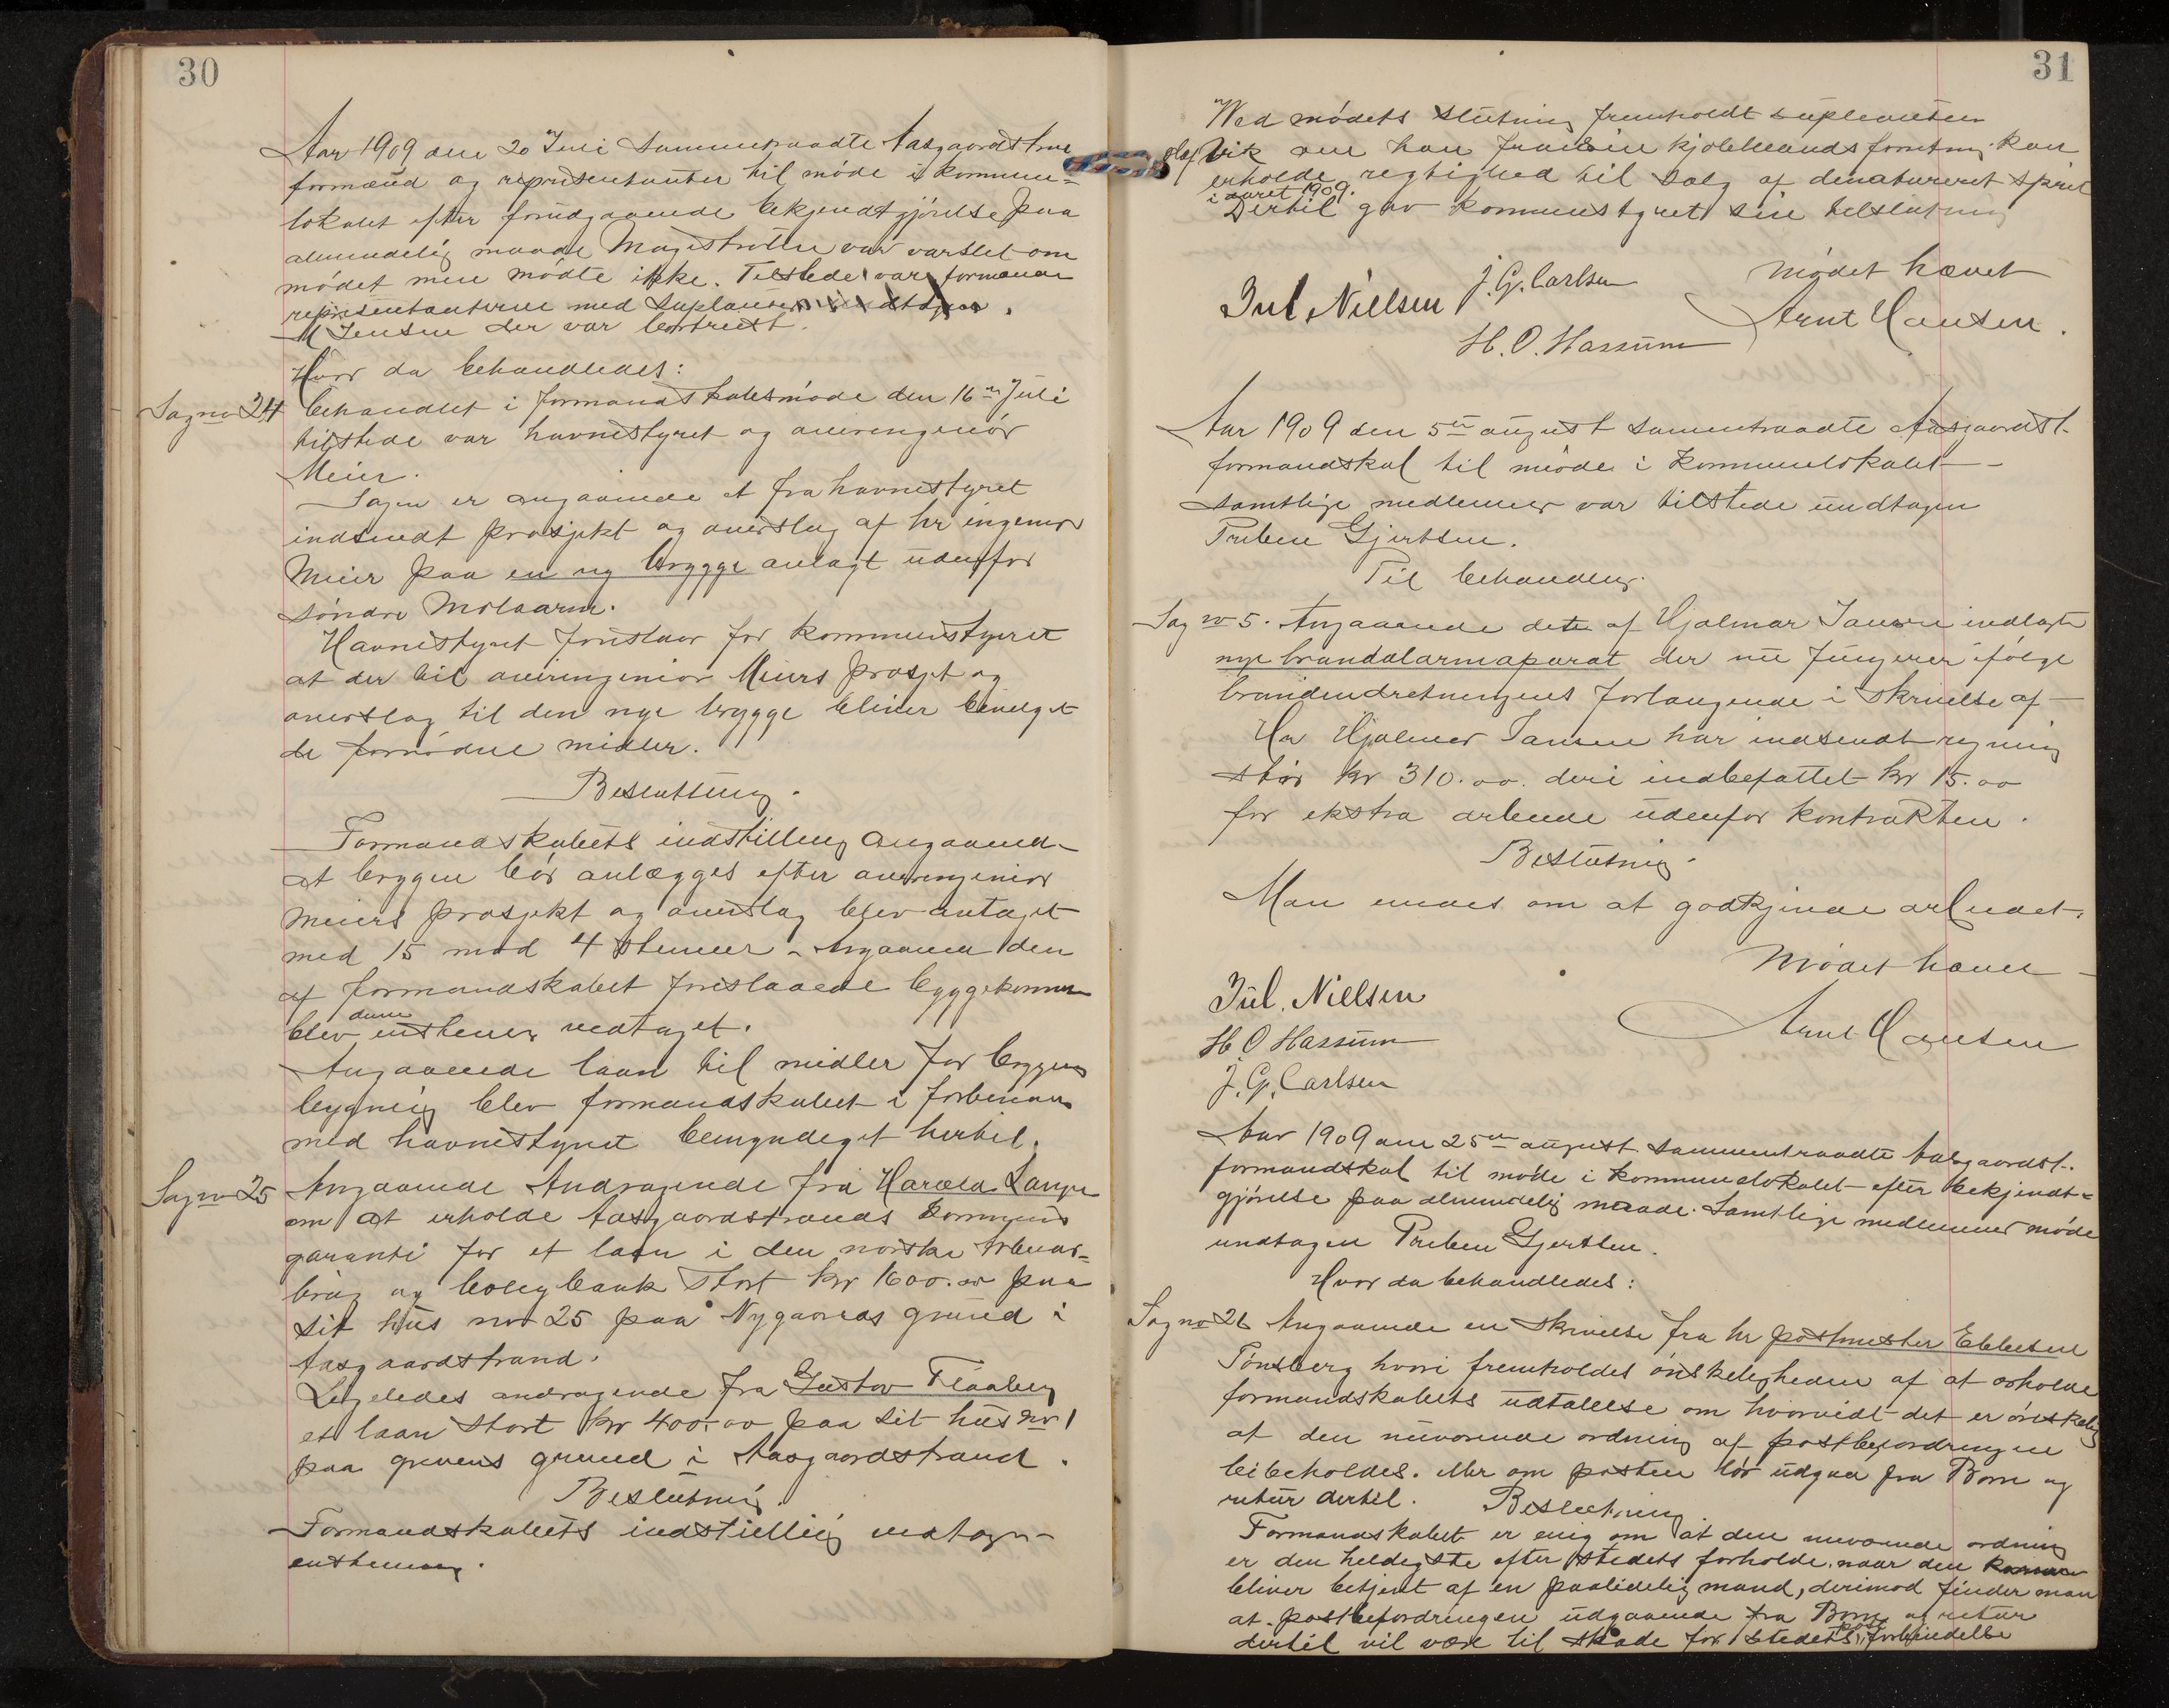 30
Aar 1909 den 20 Juli sammentraadte Aasgaardstran
formænd og representanter til møde i kommune-
lokalet efter forudgaaende bekjendtgjørelse paa
almindelig maade Magistraten var varslet om
mødet men mødte ikke. Tilstede var formænd
representanterne med Suplanter
M Jensen der var bortreist.
Hvor da behandledes:
Sag no 24 behandlet i formandskabsmøde den 16de Juli
tilstede var havnestyret og overingeniør
Meier.
Sagen er angaaende et fra havnestyret
indsendt prosjekt og overslag af hr ingeniør
Meier paa en ny brygge anlagt udenfor
søndre Moloarm.
Havnestyret foreslaar for kommunestyret
at der til overingeniør Meiers prosjet og
overslag til den nye brygge bliver bevilget
de fornødne midler.
Beslutting.
Formandskabets indstilling angaaend
at bryggen bør anlægges efter overingeniør
Meiers prosjekt og overslag blev antaget
med 15 mod 4 stemmer. Angaaend den
af formandskabet foreslaaede byggekomm
blev denne enstemmig vedtaget.
Angaaende laan til midler for bryggens
bygning blev formandskabet i forbindelse
med havnestyret bemyndeget hertil.
Sag no 25 Angaaende Andragende fra Harald Lange
om at erholde Aasgaardstrands Kommunes
garanti for et laan i den norske Arbeider-
brug og boligbank stort kr 1600.00 paa
sit hus no 25 paa Nygaards grund i
Aasgaardstrand.
Ligeledes andragende fra Gustav Flaaberg
et laan stort kr 400.00 paa sit hus no 1
paa grevens grund i Aasgaardstrand.
Beslutning.
Formandskabets indstilling vedtagen
enstemmig.
31
Ved mødets slutning fremholdt suplenten
Olaf Vik om han fra sin kjøbmandsforretning kan
erholde regtighed til salg af denatureret sprit
i aaret 1909.
Dertil gav kommunestyret sin tilslutning
Mødet hævet
Jul. Nielsen J. G. Carlsen
Arnt Hansen.
H. O. Hassum
Aar 1909 den 5te august sammentraadte Aasgaardst.
formandskab til møde i Kommunelokalet
samtlige medlemmer var tilstede undtagen
Preben Gjertsen.
Til behandling.
Sag no 5. Angaaende dete af Hjalmar Jansen indlagte
nye brandalarmaparat der nu fungerer ifølge
brandindretningens forlangende i skrivelse af
Hr Hjalmar Jansen har indsendt regning
stor kr 310.00. deri indbefattet kr 15.00
for ekstra arbeide udenfor kontrakten.
Beslutning.
Man enedes om at godkjende arbeidet.
Mødet hævet
Jul. Nielsen
Arnt Hansen
H. O Hassum
J. G. Carlsen
Aar 1909 den 25de august sammentraadte Aasgaardst.
formandskab til møde i kommunelokalet efter bekjendt-
gjørelse paa almindelig maade. Samtlige medlemmer møde
undtagen Preben Gjertsen.
Hvor da behandledes:
Sag no 26 Angaaende en skrivelse fra hr postmester Ebbesen
Tønsberg hvori fremholdes ønskeligheden af at erholde
formandskabets udtalelse om hvorvidt det er ønskelig
at den nuværende ordning af postbefordringen
bibeholdes. Eller om posten bør udgaa fra Borre og
retur dertil. Beslutning.
Formandskabet er enig om at den nuværende ordning
er den heldigste efter stedets forholde, naar den
bliver betjent af en paalidelig mand, derimod finder man
at postbefordringen udgaaende fra Borre og retur
dertil vil være til skade for stedets post forbindelse